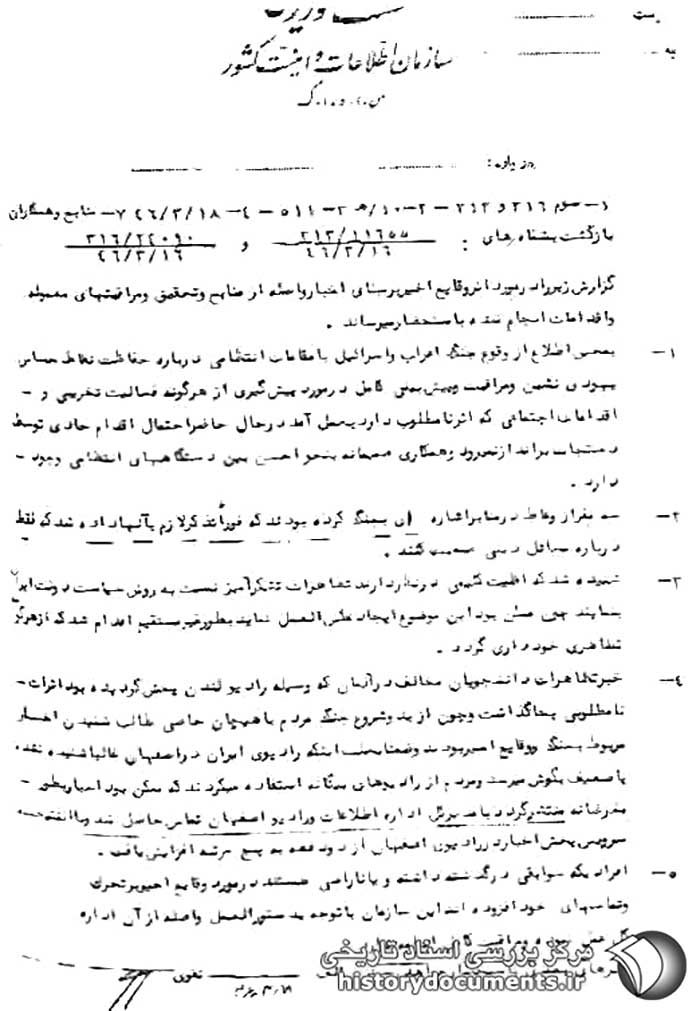 سازمان اطلاعات و امنیت کشور
درباره :
۱- سوم ۳۱۶ و ۳۱۳ -۲- ۱۰/هـ ۳- ۵۱۱ -۴- ۴۶/۳/۱۸ ۷- منابع و همکاران
بازگشت بشماره های : ۳۱۳/۱۱۶۵۵ و ۳۱۶/۲۴۰۹۰
۴۶/۳/۱۶ ۴۶/۳/۱۶
گزارش زیر در مورد وقایع اخیر برمبنای اخبار واصله از منابع و تحقیق و مراقبتهای معموله
و اقدامات انجام شده باستحضار میرساند .
۱- بمحض اطلاع از وقوع جنگ اعراب و اسرائیل با مقامات انتظامی درباره حفاظت نقاط حساس
یهودی نشین و مراقبت و پیش بینی کامل در مورد پیش گیری از هرگونه فعالیت تخریبی و -
اقدامات اجتماعی که اثر نامطلوب دارد بعمل آمد در حال حاضر احتمال اقدام حادی توسط
دستجات برانداز نمیرود و همکاری صمیمانه بنحو احسن بین دستگاههای انتظامی وجود -
دارد .
۲- سه نفر از وعاظ در منابر اشاره ای بجنگ کرده بودند که فوراً تذکر لازم بآنها داده شد که فقط
درباره مسائل دینی صحبت کنند .
۳- شنیده شد که اقلیت کلیمی در نظر دارند تظاهرات تشکرآمیز نسبت به روش سیاست دولت ایران
بنمایند چون ممکن بود این موضوع ایجاد عکس العمل نماید بطور غیر مستقیم اقدام شد که از هرگونه
تظاهری خودداری گردد .
۴- خبر تظاهرات دانشجویان مخالف در آلمان که وسیله رادیو لندن پخش گردیده بود اثرات -
نامطلوبی بجا گذاشت و چون از بدو شروع جنگ مردم با هیجان خاصی طالب شنیدن اخبار
مربوط بجنگ و وقایع اخیر بودند و ضمناً بعلت اینکه رادیوی ایران در اصفهان غالباً شنیده نشده
یا ضعیف بگوش میرسد و مردم از رادیوهای بیگانه استفاده میکردند که ممکن بود اخبار بطور -
مغرضانه منتشر گردد با مدیرکل اداره اطلاعات و رادیو اصفهان تماس حاصل شد و
سرویس پخش اخبار در رادیوی اصفهان از دو دفعه به پنج مرتبه افزایش یافت .
۵- افرادیکه سوابقی در گذشته داشته و یا ناراضی هستند در مورد وقایع اخیر بر تحرک
و تماسهای خود افزوده اند این سازمان با توجه بدستورالعمل واصله از آن اداره
تقوی
مرکز بررسی اسناد تاریخی
historydocuments.ir